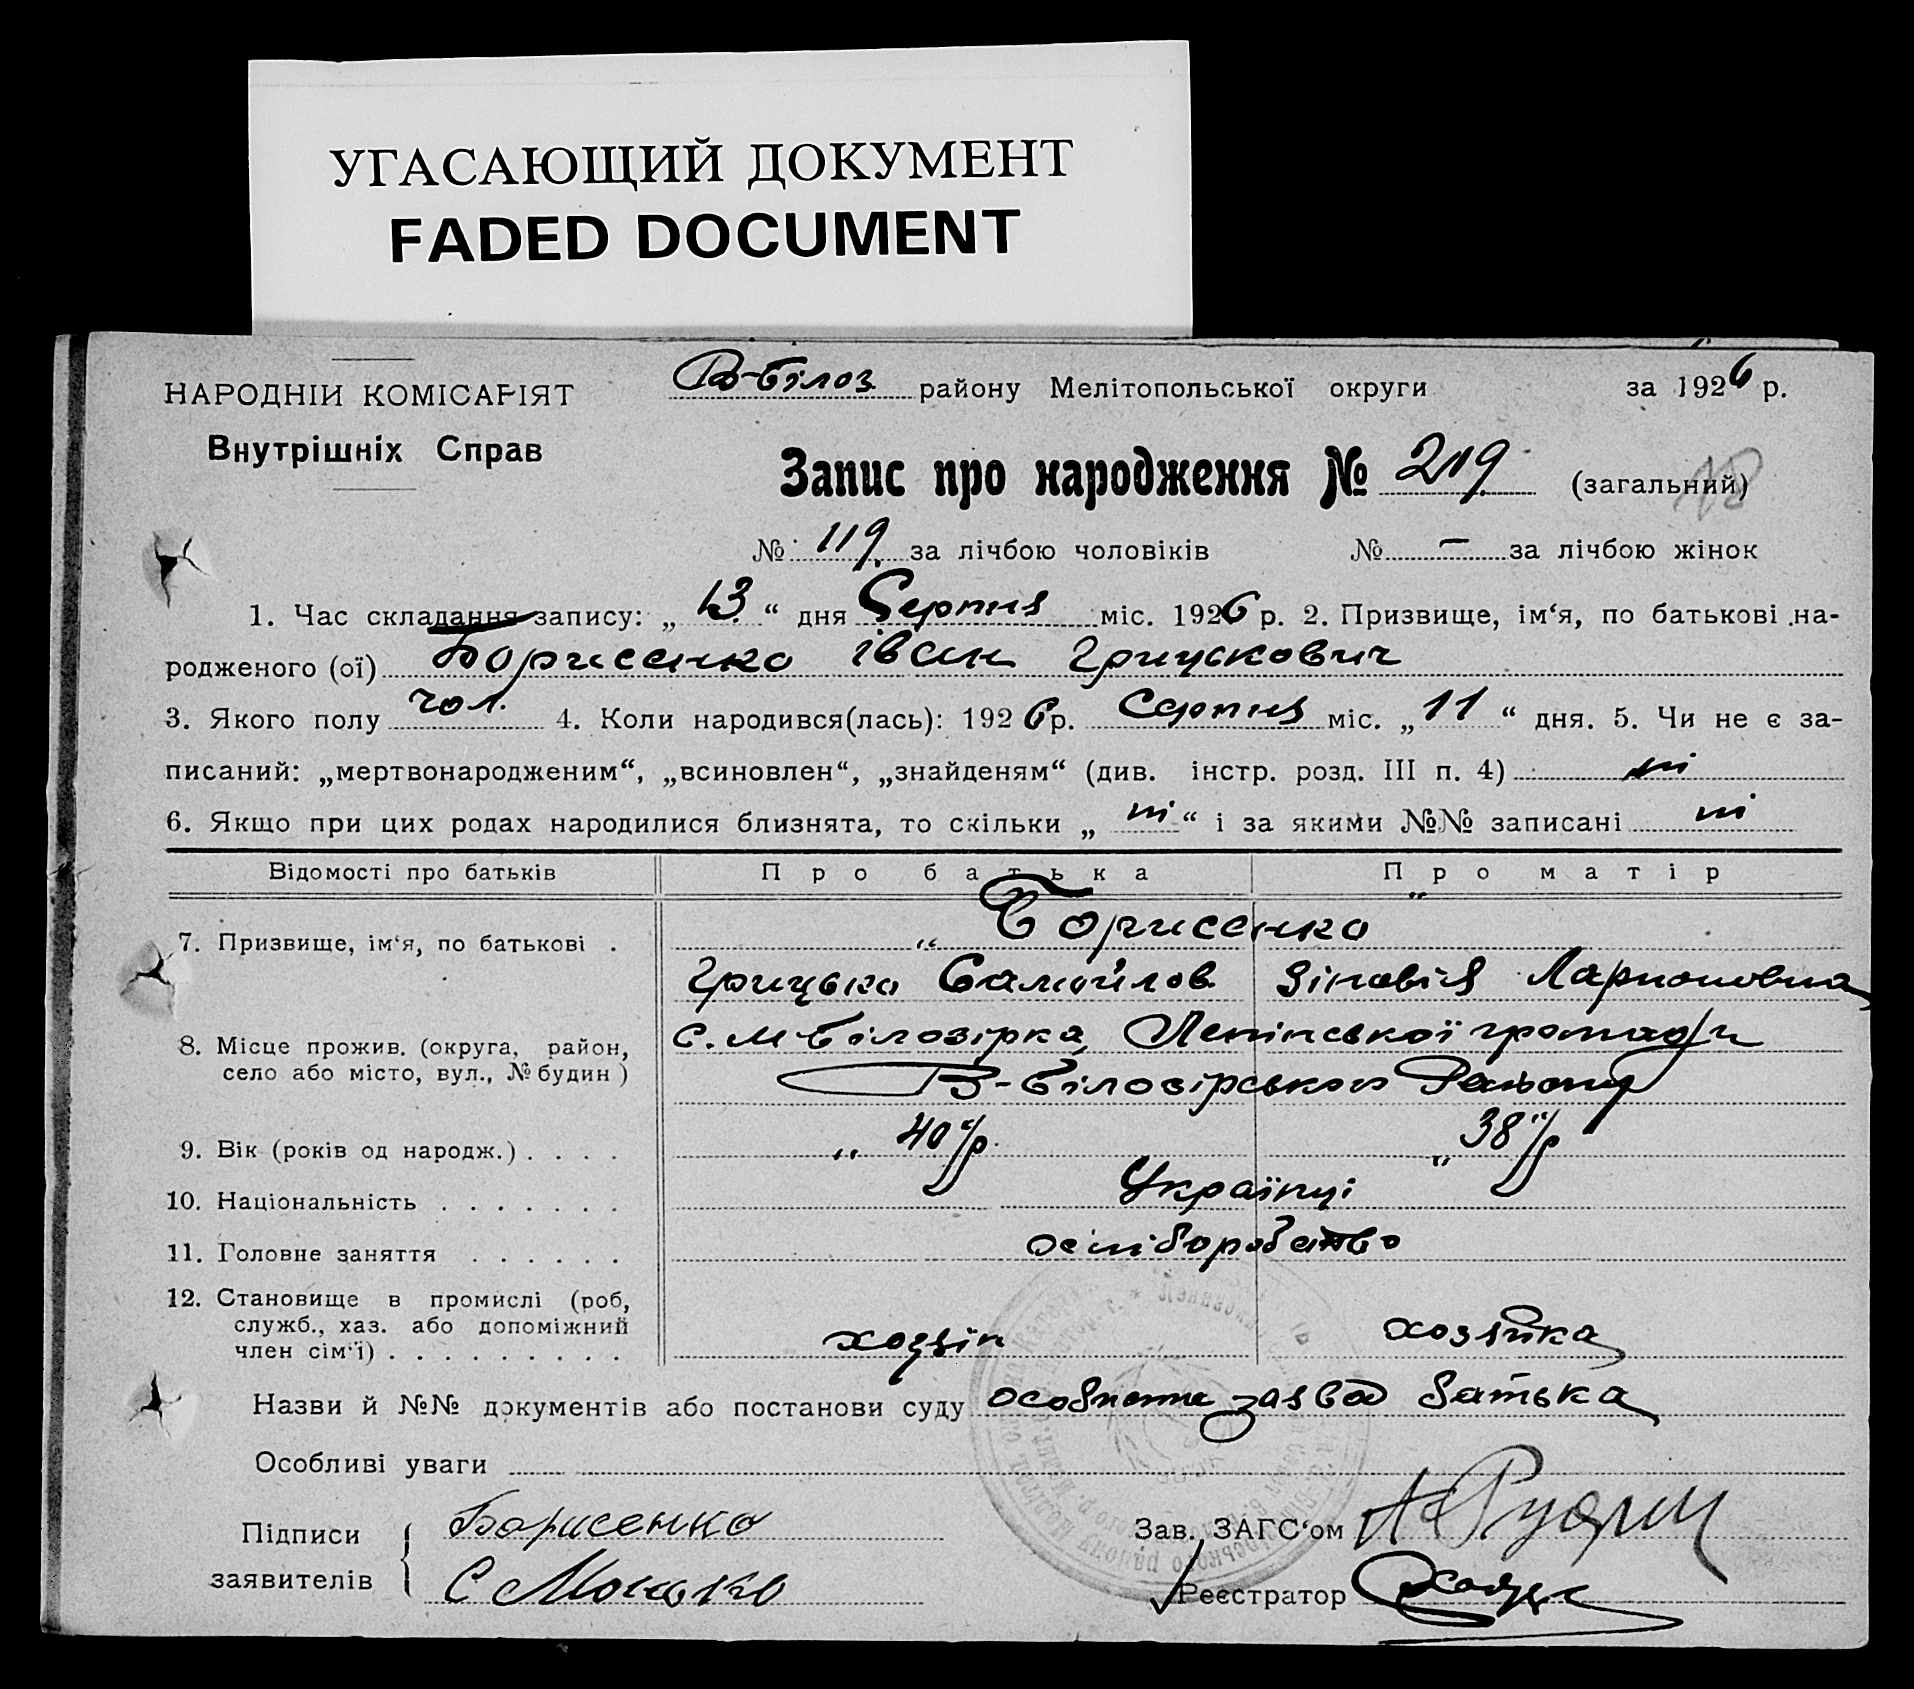 УГАСАЮЩИЙ ДОКУМЕНТ
FADED DOCUMENT
НАРОДНІЙ КОМІСАРІЯТ
Внутрішніх Справ
В-Білоз. району Мелітопольської округи за 1926 р.
Запис про народження № 219 (загальний)
№ 119 за лічбою чоловіків № – за лічбою жінок
1. Час складання запису: „13“ дня Серпня міс. 1926 р. 2. Призвище, ім‘я, по батькові на-
родженого (ої) Борисенко Іван Грицькович
3. Якого полу чол. 4. Коли народився(лась): 1926 р. Серпня міс. „11“ дня. 5. Чи не є за-
писаний: „мертвонародженим“, „всиновлен“, „знайденям“ (див. інстр. розд. III п. 4) ні
6. Якщо при цих родах народилися близнята, то скільки „ні“ і за якими №№ записані ні
Відомості про батьків Про батька Про матір
7. Призвище, ім‘я, по батькові . „ Борисенко „
Грицько Самойлов. Зіновія Ларионовна
8. Місце прожив. (округа, район, с. М-Білозірка, Ленінської громади
село або місто, вул., № будин) В-Білозірського Району
9. Вік (років од народж.) . . . . „ 40 р. „ 38 р
10. Національність . . . . . . . Українці
11. Головне заняття . . . . . . хліборобство
12. Становище в промислі (роб,
служб., хаз. або допоміжний
член сім‘ї) . . . . . . . . . хозяін хозяйка
Назви й №№ документів або постанови суду особисте заява батька
Особливі уваги
Підписи Борисенко Зав. ЗАГС‘ом
заявителів С Реєстратор